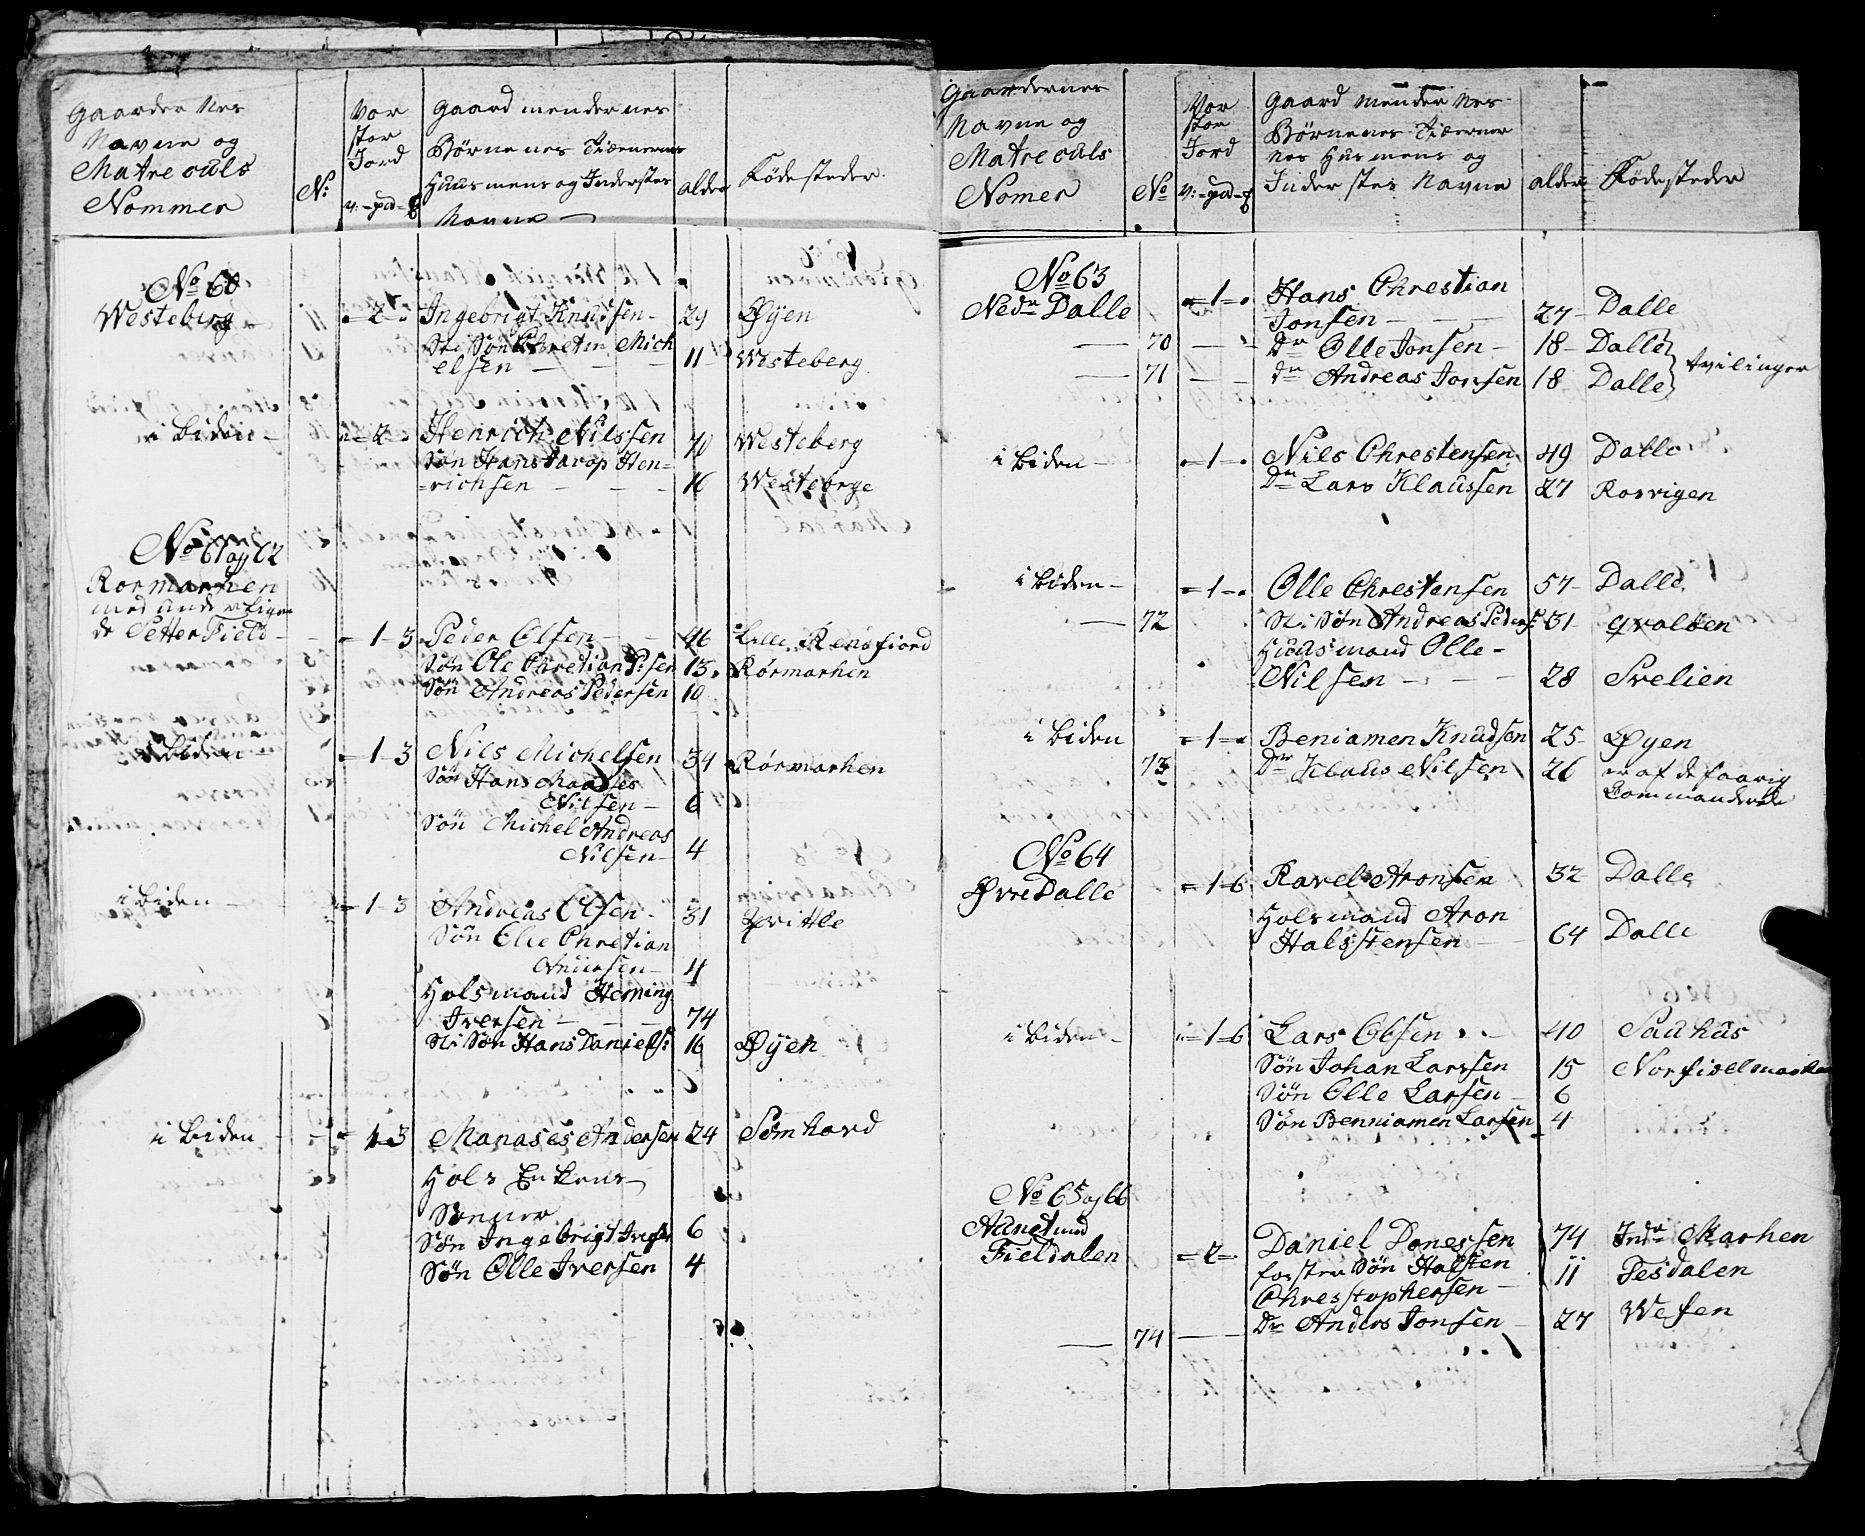 Gaarder Nes
Navne og
Matreculs
Nommer
N:
Vor
stor
Jord
v: - pd -
Gaard mendernes
Børnenes Tiænernes
Huusmens og Inderstes
Navne
alder
Føde steder
No 60
Westeberg
2
Ingebrigt Knudsen
29
Øyen
Sti Søn Chretin Mich
elsen
11
Westeberg
i biden
2
Henrich Nilssen
70
Westeberg
Søn Hans Jarop Hen=
richsen
16
Westebrge
No 61 og 62
Rormarhen
med underligen
de Setter Field
1-3
Peder Olsen
46
Lille
Søn Ole Chretian P:sen
13
Rørmarhen
Søn Andreas Pedersen
10
i biden
1-3
Nils Michelsen
34
Rørmarhen
Søn Hans Maases
Nilsen
6
Søn Michel Andreas
Nilsen
4
i biden
1-3
Andreas Olsen
31
Søn Olle Chretian
4
Holsmand Heming
Iversen
74
Sti Søn Hans Daniels:
16
Øyen
i biden
1-3
Manases Andersen
24
Somhovd
Hols Enkens
Sønner
Søn Ingebrigt Ivers
6
Søn Olle Iversen
4
Gaardernes
Navne og
Matreculs
Nomer
No
Vor
stor
Jord
v: - pd -
Gaard mender nes
Børnenes Tiæerner
nes Husmens og
Inder stes Navne
alder
Føde steder
No 63
Nedr Dalle
1
Hans Chrestian
Jonsen
27
Dalle
70
Dr Olle Jonsen
18
Dalle
71
dr Andreas Jonsen
18
Dalle
tvilinger
i biden
1
Nils Chrestensen
49
Dalle
Dr Lars Klaussen
27
Rorvigen
i biden
1
Olle Chrestensen
57
Dalle
72
Sti Søn Andreas Peders:
31
Qvaløen
Huusmand Olle
Nilsen
28
Svelien
i biden
1
Beniamen Knudsen
25
Øyen
73
Dr Klaus Nilsen
26
er af de faarig
Commanderede
No 64
Øvre Dalle
1-6
Ravel Aronsen
32
Dalle
Holsmand Aron
Halsstensen
64
Dalle
i biden
1-6
Lars Olsen
40
Sauhus
Søn Johan Larssen
15
Søn Olle Larsen
6
Søn Benniamen Larsen
4
No 65 og 66
Aunet und
Fieldalen
2
Daniel Donessen
74
Indr Marhen
forster Søn Halsten
Chresstophersen
11
Tesdalen
74
Dr Anders Jonsen
27
Wefsen